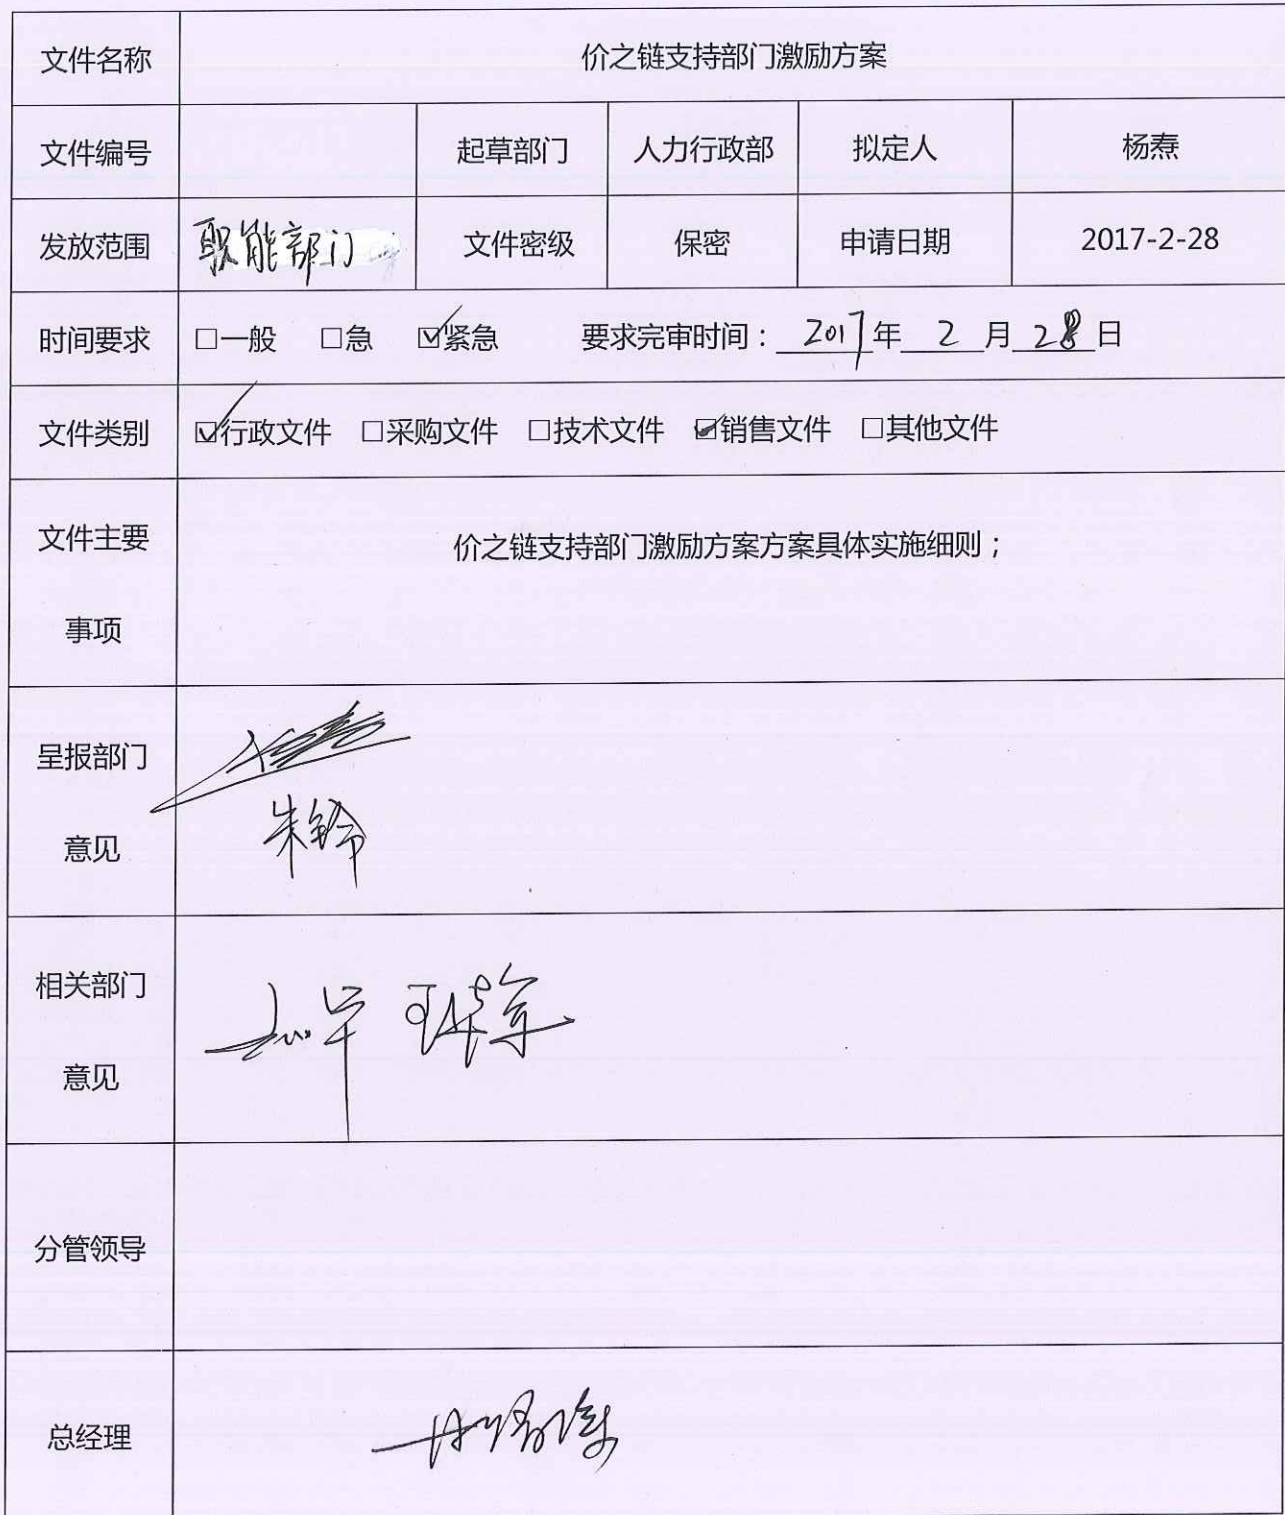 文件名称 价之链支持部门激励方案
文件编号 起草部门 人力行政部 拟定人 杨焘
发放范围 职能部门 文件密级 保密 申请日期 2017-2-28
时间要求 □一般 □急 ☑紧急 要求完审时间：2017年 2 月 28 日
文件类别 ☑行政文件 □采购文件 □技术文件 ☑销售文件 □其他文件
文件主要
事项
价之链支持部门激励方案方案具体实施细则；
呈报部门
意见
朱铃
相关部门
意见
分管领导
总经理